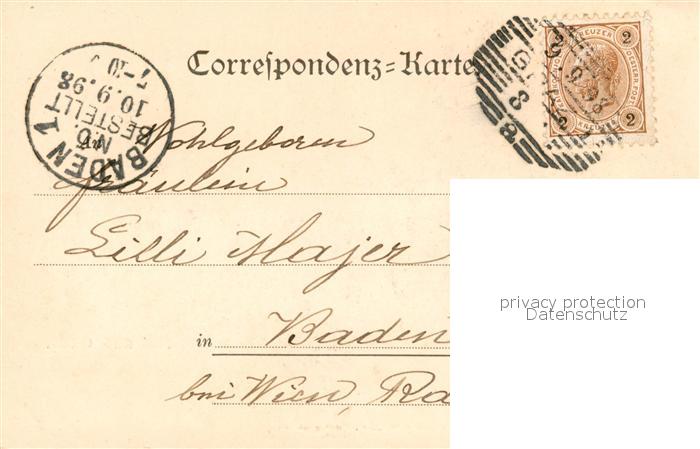 Correspondenz-Karte
BADEN 1
N.Ö.
BESTELLT
10.9.98
7-10 V
2 2
KREUZER
2 2
An
Wohlgeboren
Fräulein
Lilli Majer
in Baden
bei Wien, Ra
privacy protection
Datenschutz